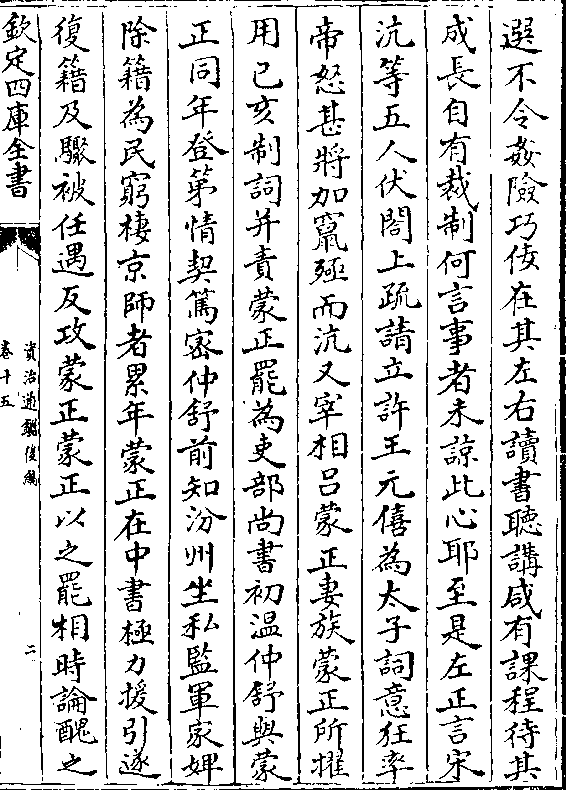 選不令姦險巧佞在其左右讀書聽講咸有課程待其
成長自有裁制何言事者未諒此心耶至是左正言宋
沆等五人伏閤上疏請立許王元僖為太子詞意狂率
帝怒甚將加竄殛而沆又宰相吕蒙正妻族蒙正所擢
用已亥制詞并責蒙正罷為吏部尚書初温仲舒與蒙
正同年登第情契篤密仲舒前知汾州坐私監軍家婢
除籍為民窮棲京師者累年蒙正在中書極力援引遂
復籍及驟被任遇反攻蒙正蒙正以之罷相時論醜之
欽定四庫全書
資治通鑑後編
卷十五
二